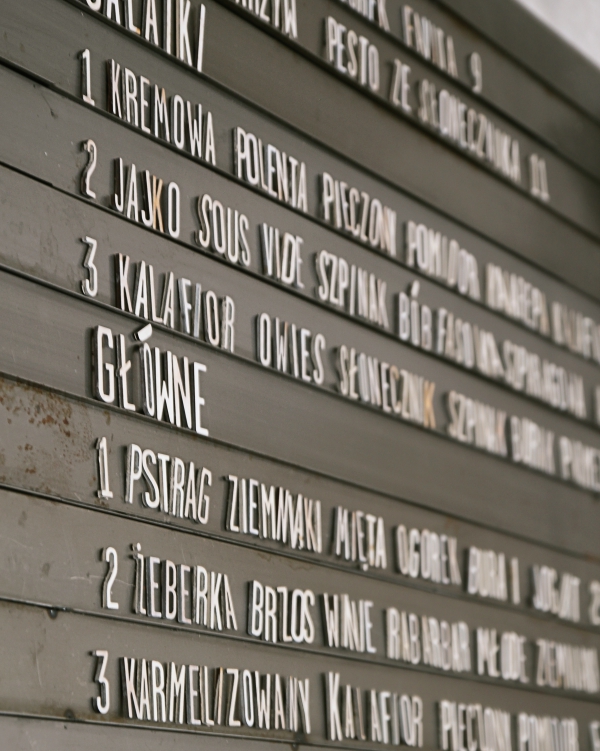 9
PESTO ZE SŁONECZNIKA 11
SAŁATKI
1 KREMOWA POLENTA PIECZONY POMIDOR
2 JAJKO SOUS VIDE SZPINAK BÓB FASOLKA SZPARAGOWA
3 KALAFIOR OWIES SŁONECZNIK SZPINAK BURAK
GŁÓWNE
1 PSTRAG ZIEMNIAKI MIĘTA OGOREK BURAK JOGURT
2 ŻEBERKA BRZOSKWINIE RABARBAR MŁODE
3 KARMELIZOWANY KALAFIOR PIECZONY POMIDOR